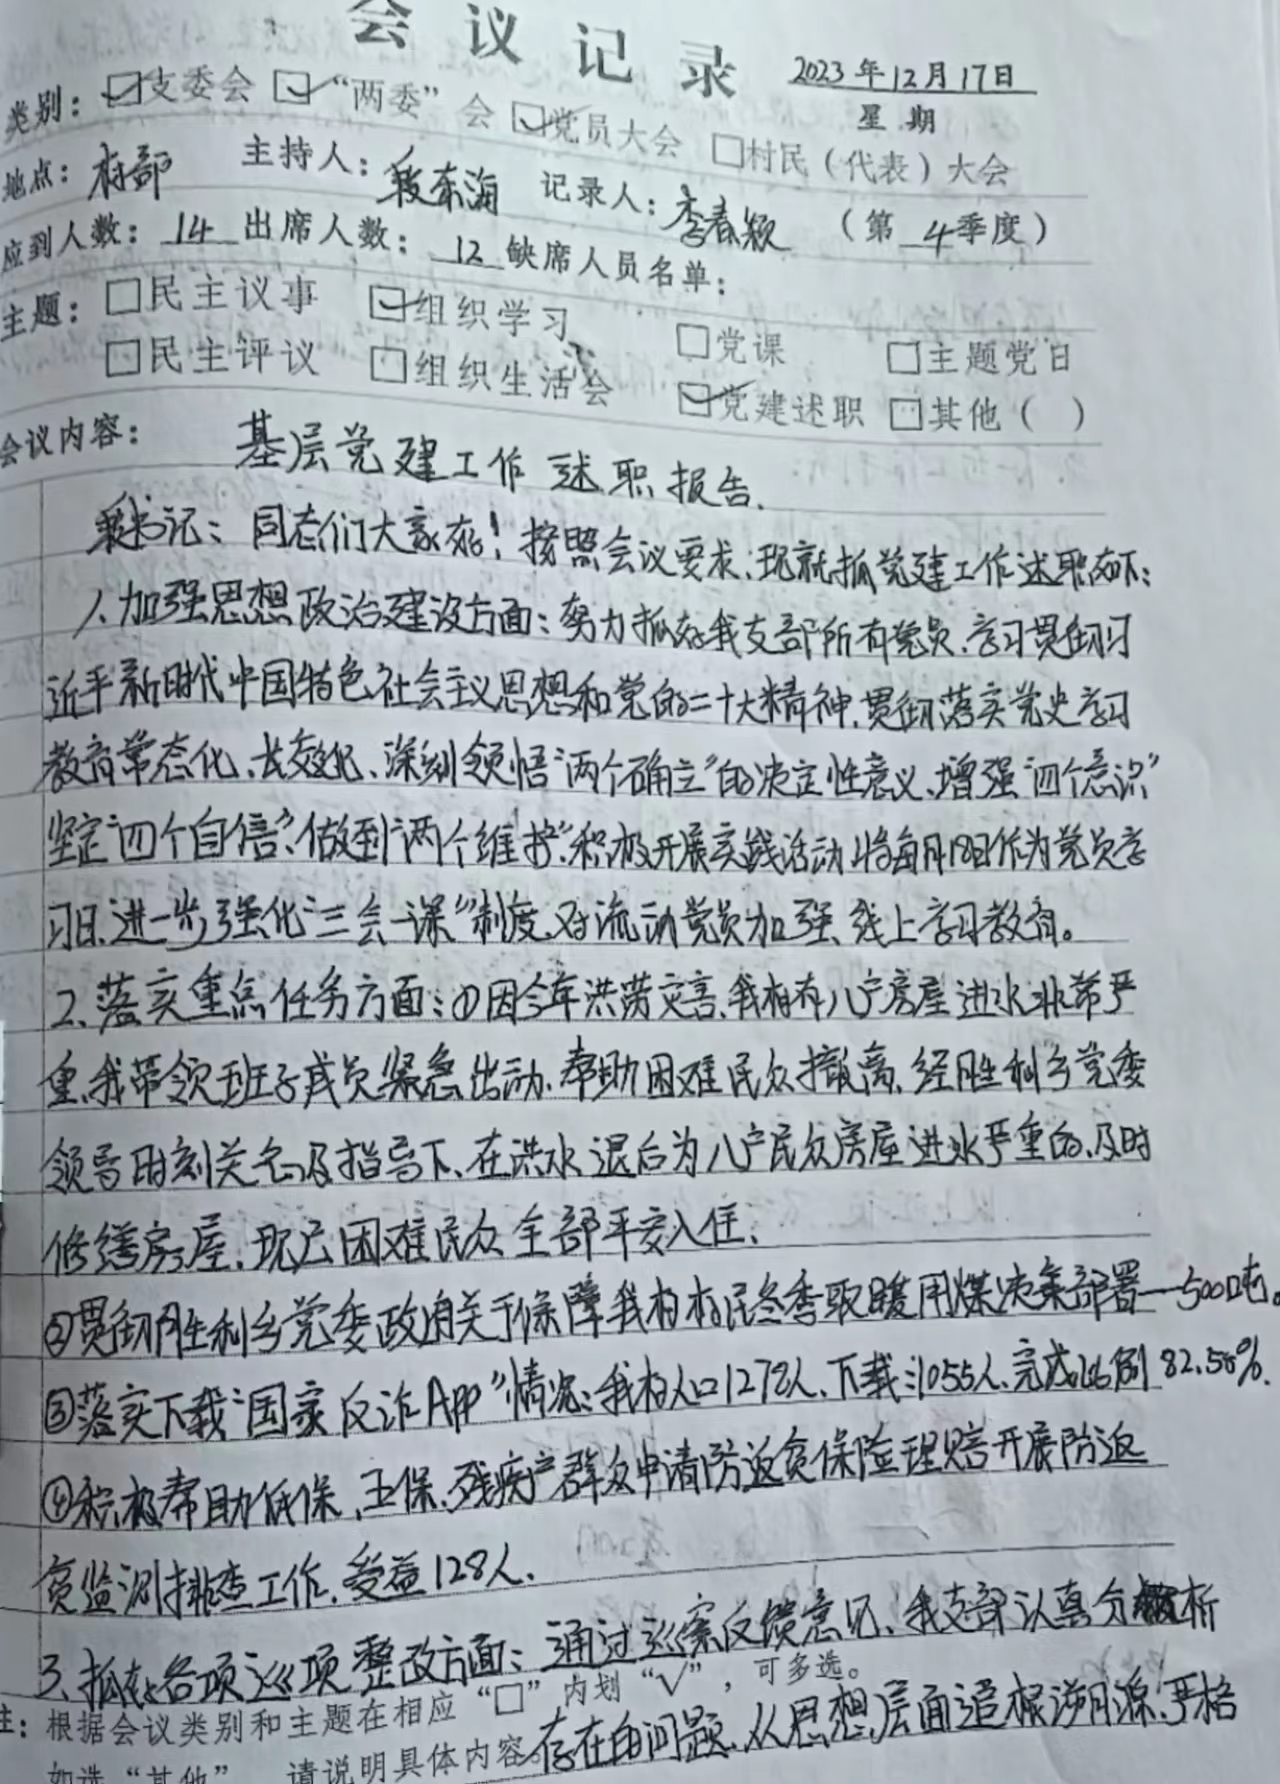 会议记录
2023年12月17日
星期
类别：☑支委会 ☑“两委”会 ☑党员大会 □村民（代表）大会
地点：村部 主持人：段东海 记录人：李春颖 （第4季度）
应到人数：14 出席人数：12 缺席人员名单：
主题：□民主议事 ☑组织学习 □党课 □主题党日
□民主评议 □组织生活会 ☑党建述职 □其他（ ）
会议内容： 基层党建工作述职报告.
书记：同志们大家好！按照会议要求，现就抓党建工作述职如下：
1、加强思想政治建设方面：努力抓好我支部所有党员、学习贯彻习
近平新时代中国特色社会主义思想和党的二十大精神，贯彻落实党史学习
教育常态化、长效化、深刻领悟“两个确立”的决定性意义、增强“四个意识”
坚定“四个自信”、做到“两个维护”积极开展实践活动，将每月18日作为党员学
习日，进一步强化“三会一课”制度，对流动党员加强线上学习教育。
2、落实重点任务方面：①因今年洪涝灾害，我村有八户房屋进水非常严
重，我带领班子成员紧急出动、帮助困难民众撤离，经胜利乡党委
领导时刻关心及指导下、在洪水退后为八户民众房屋进水严重的，及时
修缮房屋，现已困难民众全部平安入住，
②贯彻胜利乡党委政府关于保障我村村民冬季取暖用煤决策部署—500吨。
③落实下载“国家反诈APP”情况：我村人口1278人、下载：1055人、完成比例82.56%.
④积极帮助低保、五保、残疾户群众申请防返贫保险理赔开展防返
贫监测排查工作，受益128人.
3、抓好各项巡项整改方面：通过巡察反馈意见、我支部认真分析
注：根据会议类别和主题在相应“□”内划“√”，可多选。
存在的问题，从思想层面追根溯源，严格
如选“其他”，请说明具体内容。